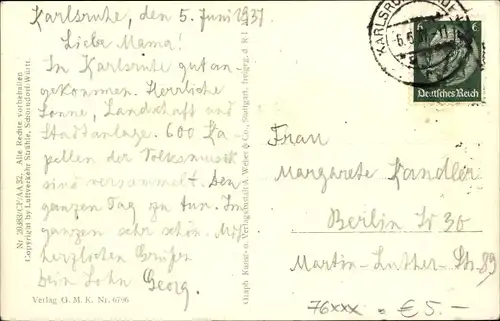 Karlsruhe, den 5. Juni 1937.
Liebe Mama!
In Karlsruhe gut an-
gekommen. Herrliche
Sonne, Landschaft und
Stadtanlage. 600 Ka-
pellen der Volksmusik
sind versammelt. Den
ganzen Tag zu tun. Im
ganzen sehr schön. Mit
herzlichen Grüßen
Dein Sohn Georg.
Verlag G. M. K. Nr. 6796
Nr. 28383/CF/AA 32. Alle Rechte vorbehalten
Copyright by Luftverkehr Strähle, Schorndorf-Württ.
Graph. Kunst- u. Verlagsanstalt A. Weber & Co., Stuttgart, freigeg. d. R. L. M.
KARLSRUHE
6.6.
6
Deutsches Reich
Frau
Margarete Kandler
Berlin W 30
Martin-Luther-Str. 89
76xxx = € 5.-